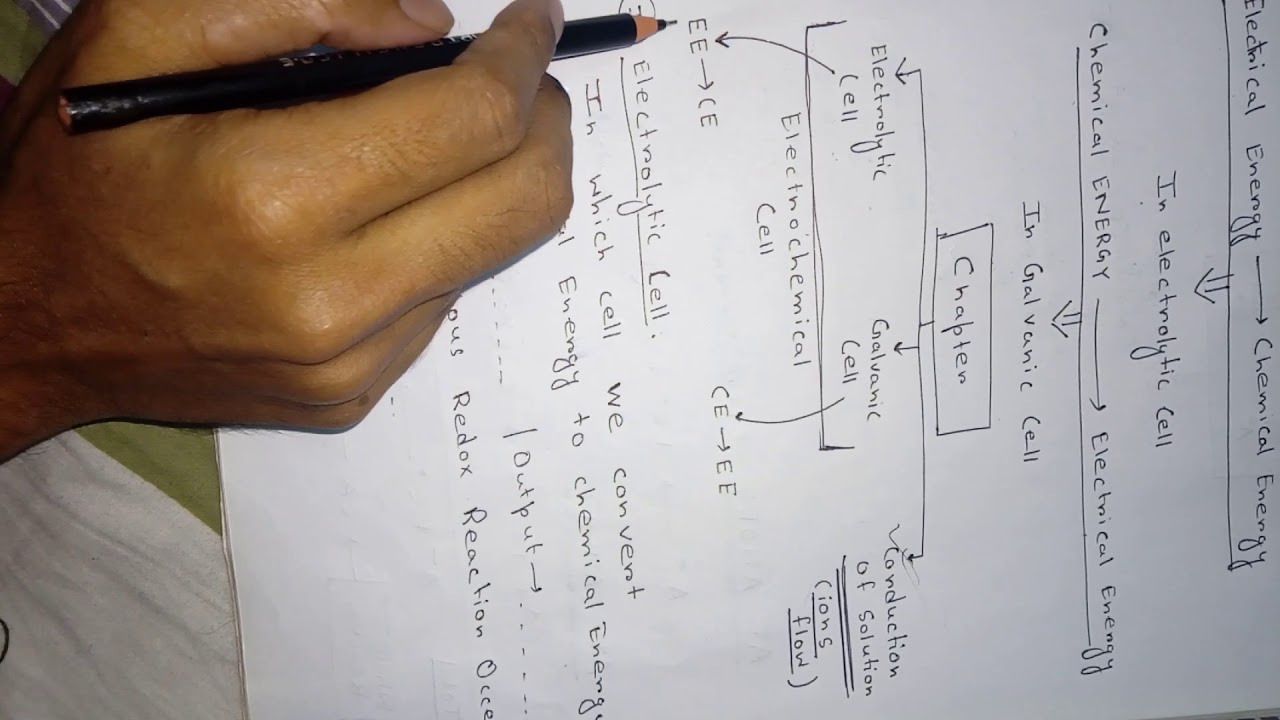 Electrical Energy → Chemical Energy
⇓
In electrolytic Cell
Chemical ENERGY → Electrical Energy
⇓
In Galvanic Cell
Chapter
Electrolytic Cell
Galvanic Cell
Conduction of Solution (ions flow)
Electrochemical Cell
EE → CE
CE → EE
Electrolytic Cell:
In which cell we convert
Energy to chemical Energy
| Output → . . . . . .
Redox Reaction